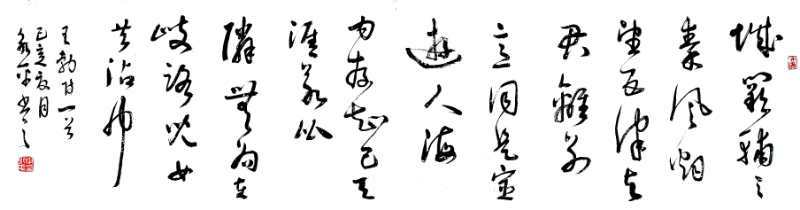 城闕輔三
秦風烟
望五津与
君離別
意同是宦
遊人海
内存知己天
涯若比
隣無為在
歧路兒女
共沾巾
王勃詩一首
己亥夏月